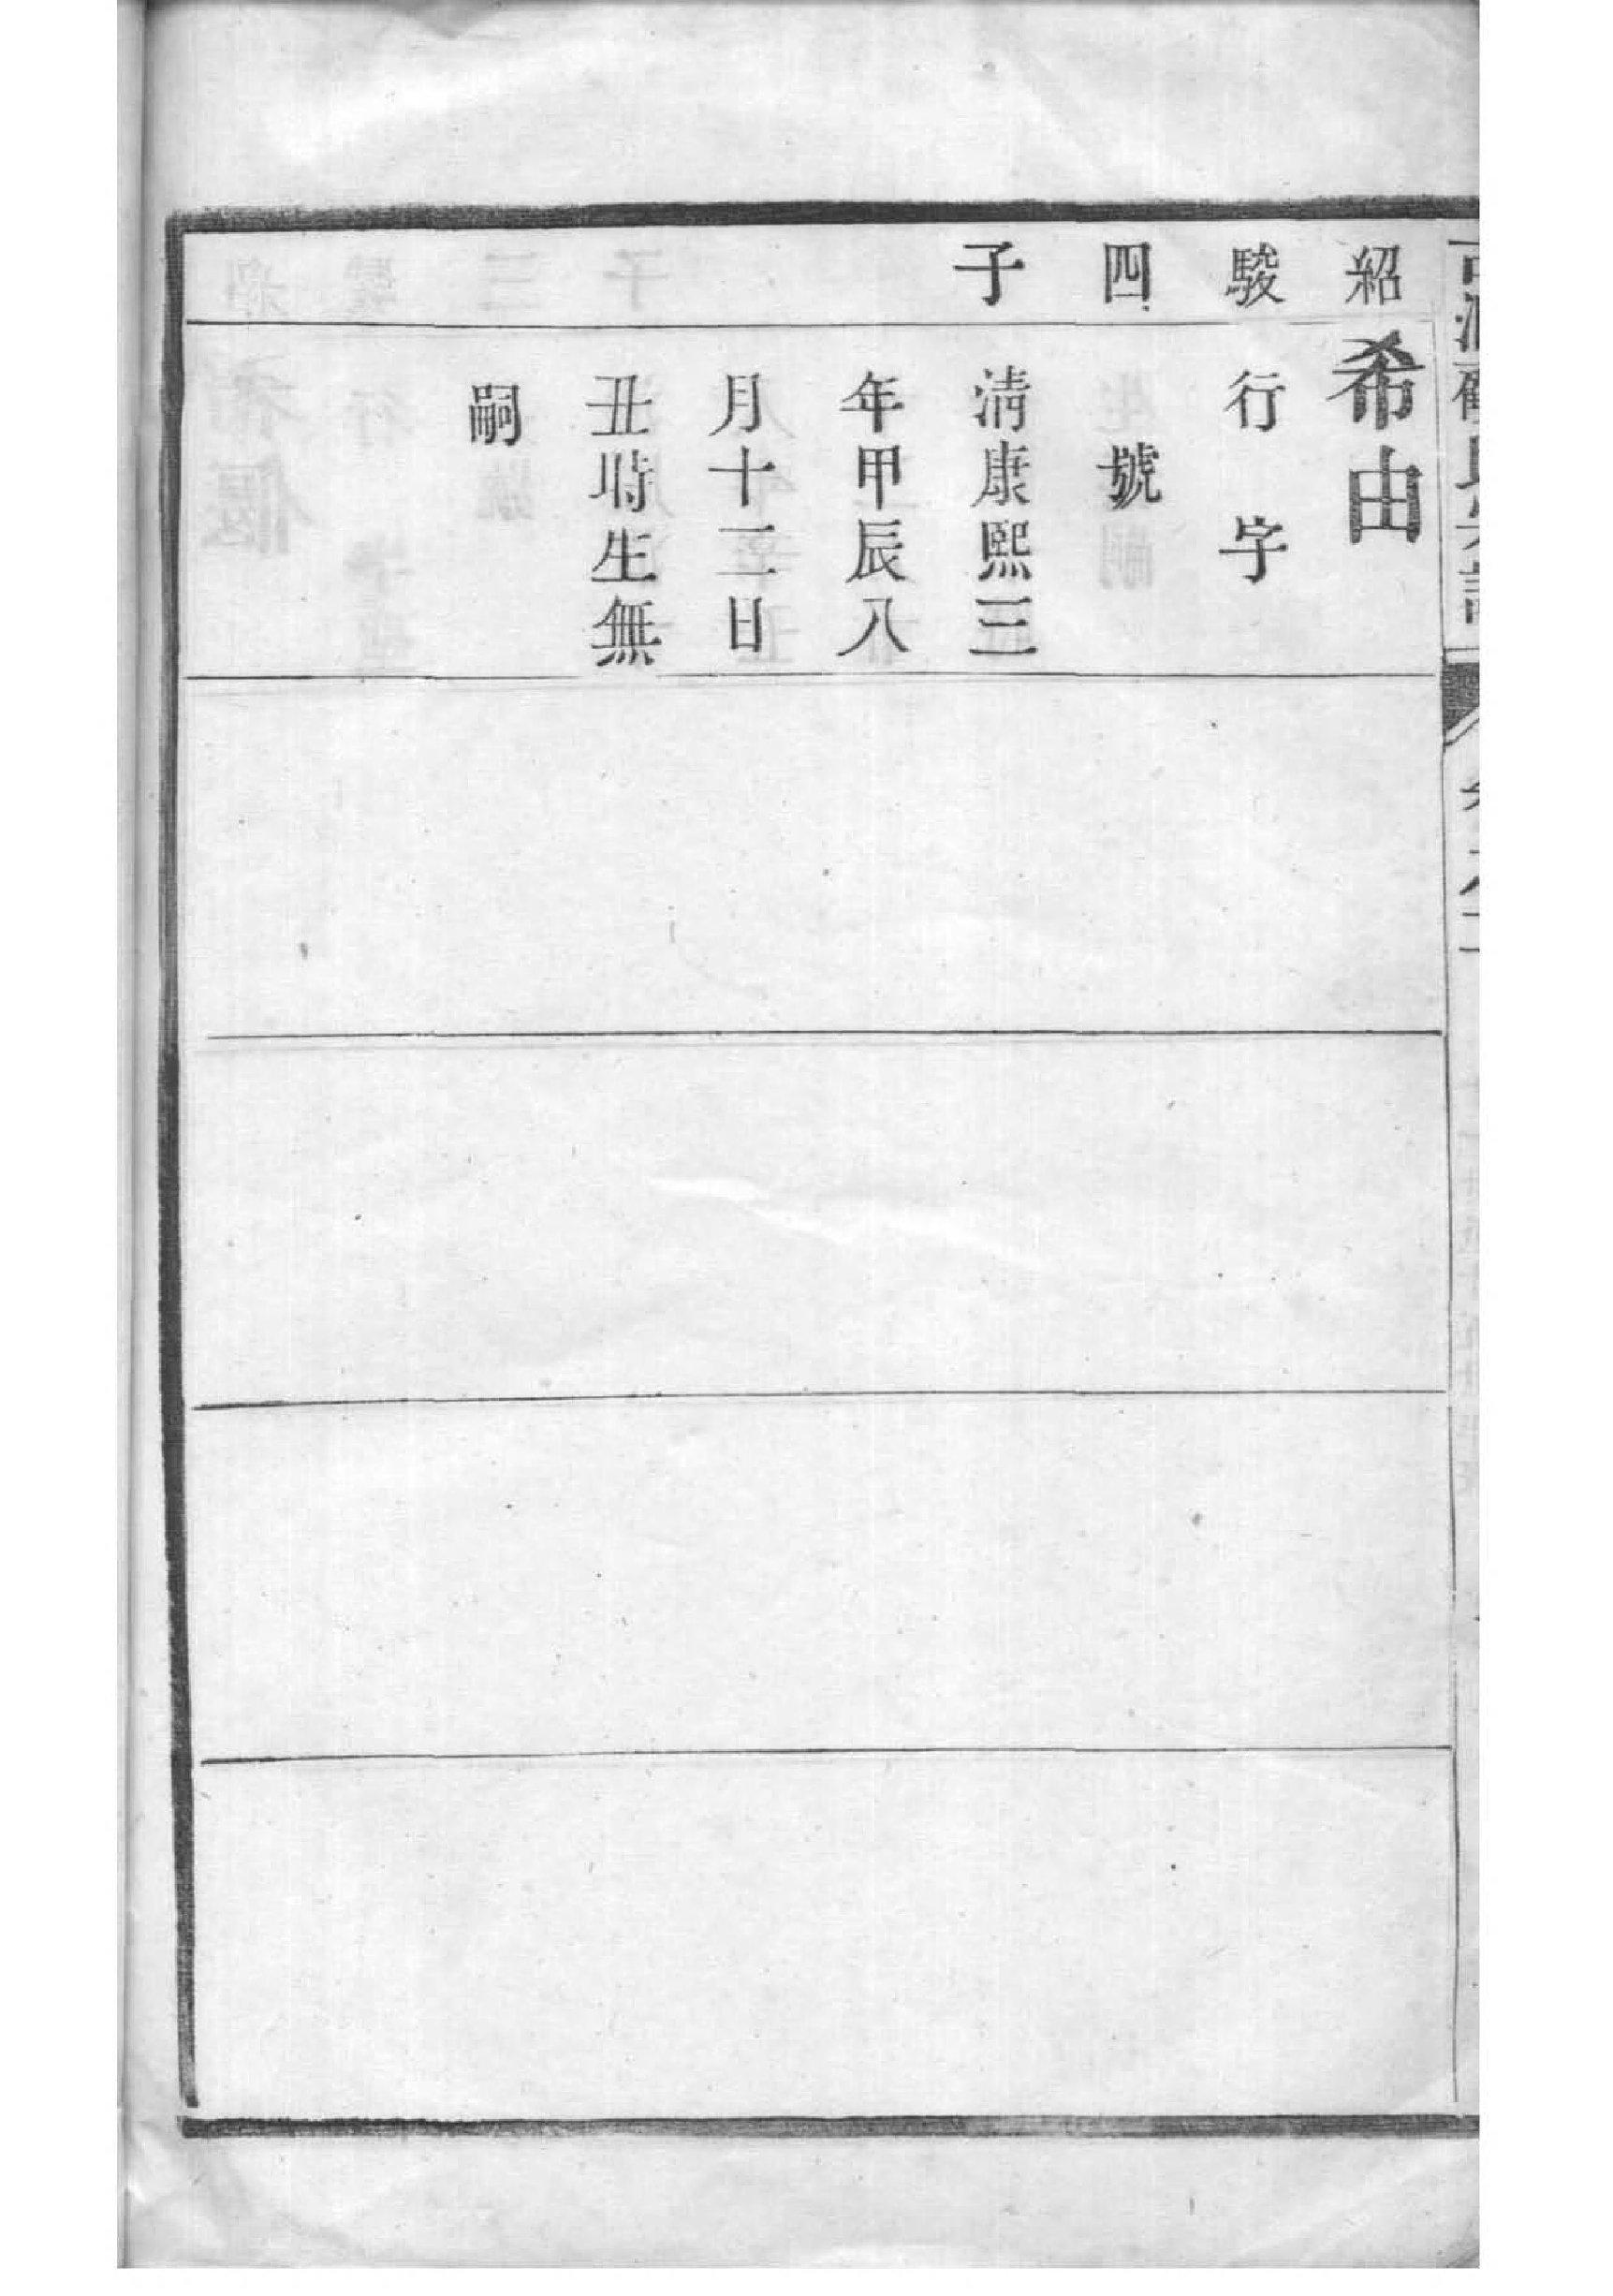 紹駿四子
希由
行　字
號
清康熙三
年甲辰八
月十二日
丑時生無
嗣